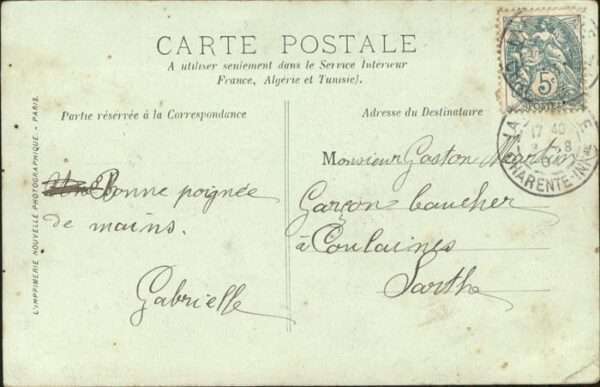 CARTE POSTALE
A utiliser seulement dans le Service Intérieur
France, Algérie et Tunisie).
Partie réservée à la Correspondance
Adresse du Destinataire
Bonne poignée
de mains.
Gabrielle
Monsieur Gaston Martin
Garçon boucher
à Coulaines
Sarthe
L'IMPRIMERIE NOUVELLE PHOTOGRAPHIQUE - PARIS
5c
POSTES
17 40
CHARENTE-INF